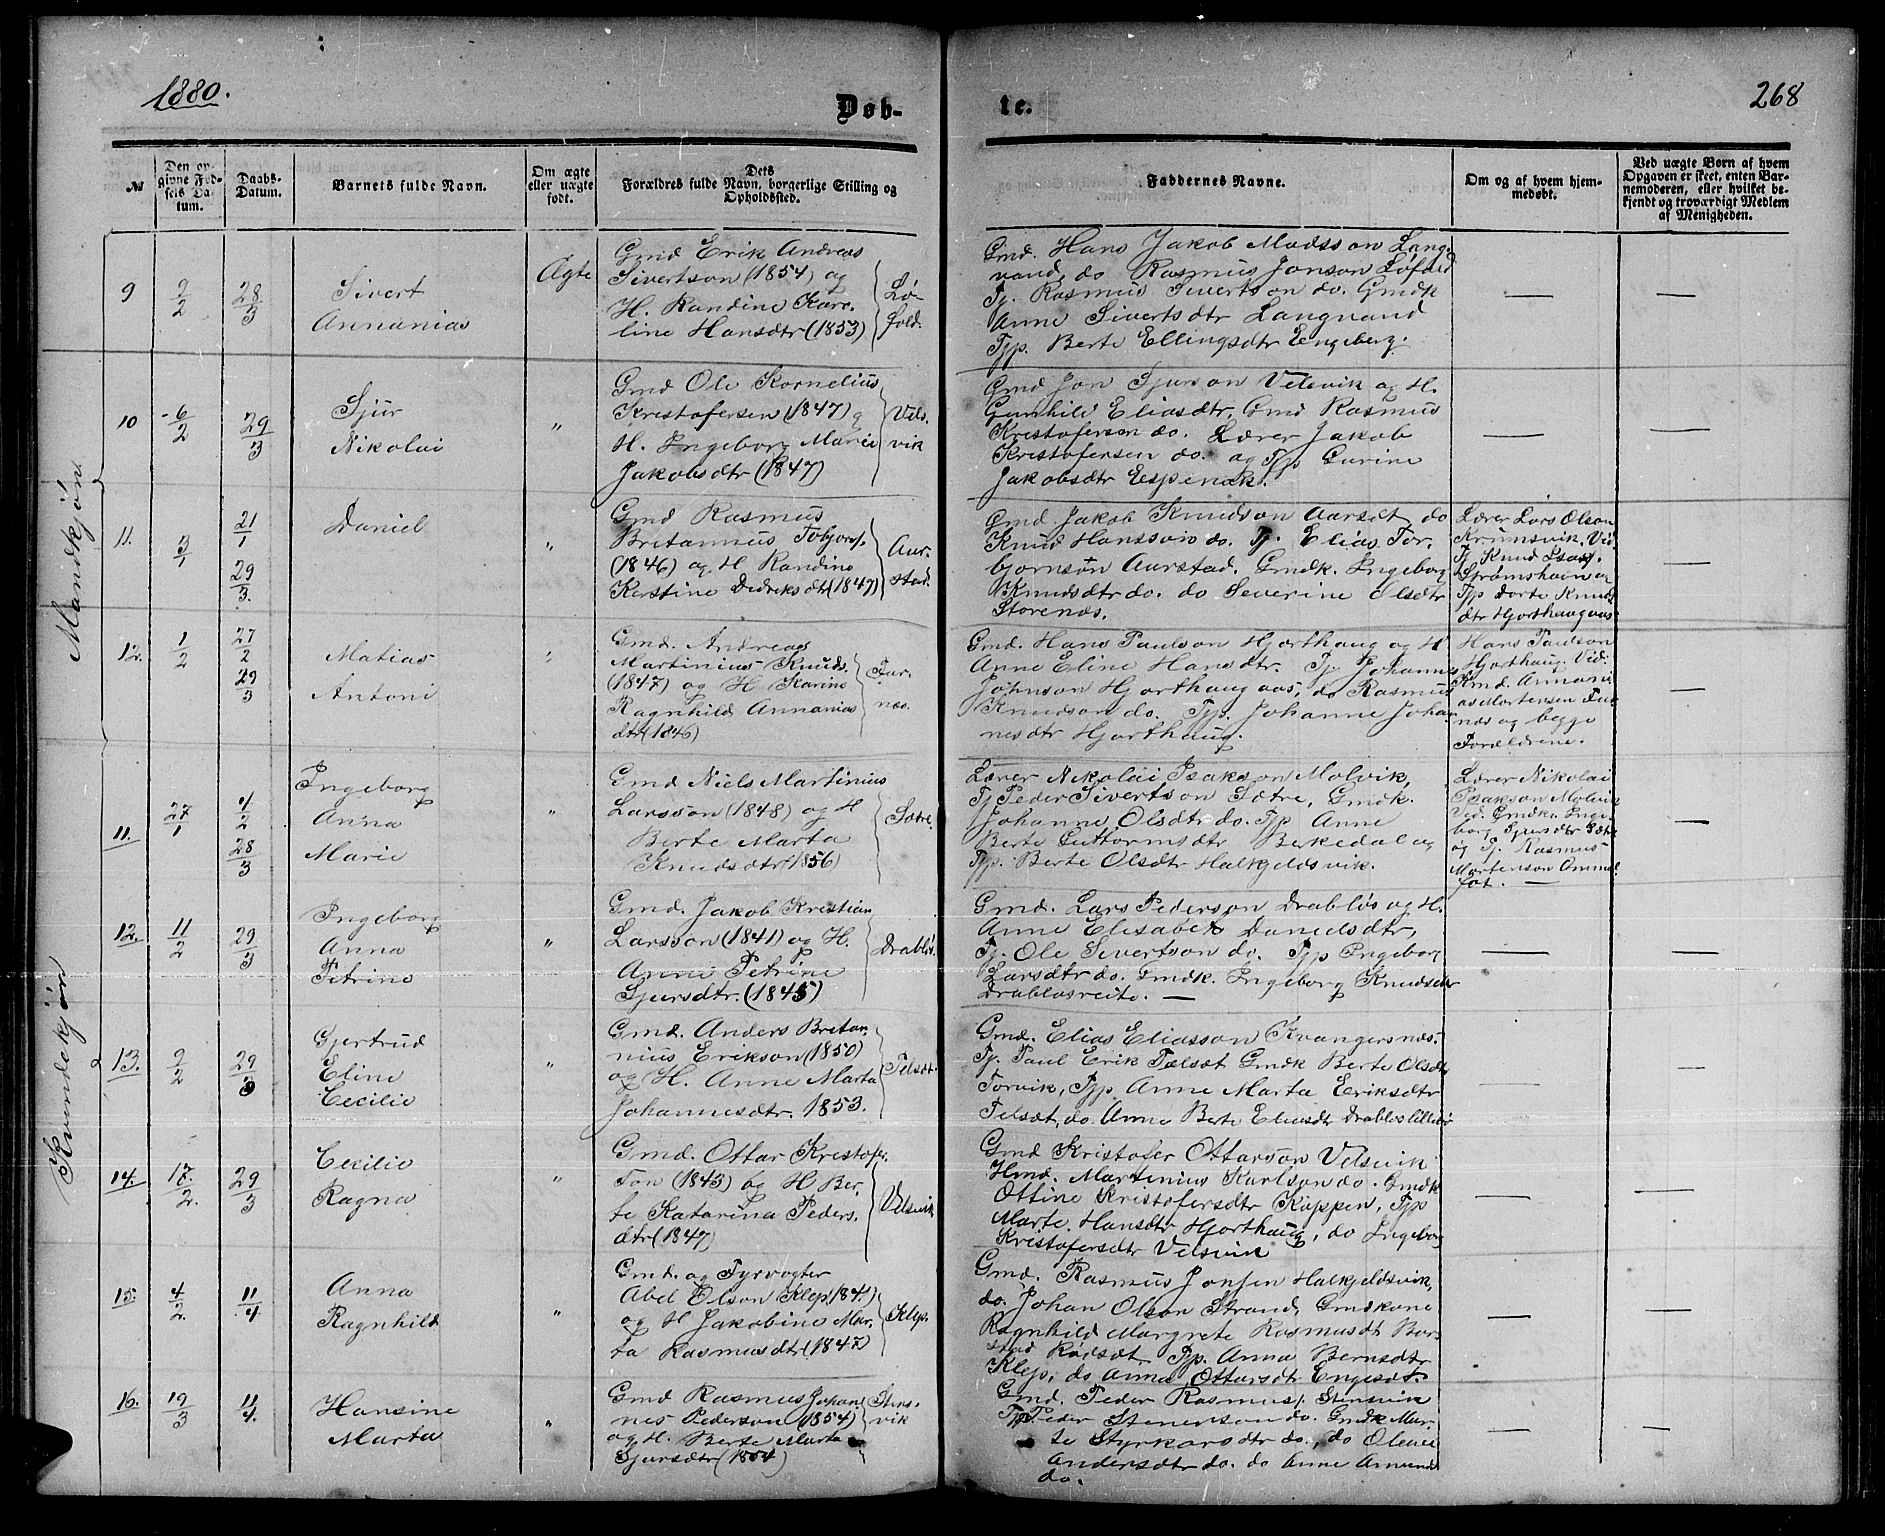 1880.
268
Døb-
te.
№
Den op-
givne Fød-
sels Da-
tum.
Daabs-
Datum.
Barnets fulde Navn.
Om ægte
eller uægte
født.
Dets
Forældres fulde Navn, borgerlige Stilling og
Opholdssted.
Faddernes Navne.
Om og af hvem hjem-
medøbt.
Ved uægte Børn af hvem
Opgaven er skeet, enten Bar-
nemoderen, eller hvilket be-
kjendt og troværdigt Medlem
af Menigheden.
Mandkjøn
9
2/2
28/3
Sivert
Annanias
Ægte
Gmd Erik Andreas
Sivertson (1854) og
H. Randine Karo-
line Hansdtr (1853)
Lø-
fold.
Gmd. Hans Jakob Madsson Lang-
vand, do Rasmus Jonson Løfold
Tj. Rasmus Sivertson do. Gmdk
Anne Sivertsdtr Langvand
Tjp. Berte Ellingsdtr Engeberg.
10
6/2
29/3
Sjur
Nikolai
"
Gmd Ole Kornelius
Kristofersen (1847) og
H. Ingeborg Marie
Jakobsdtr (1847)
Vels-
vik
Gmd Jon Sjurson Velsvik og H.
Gunhild Eliasdtr, Gmd Rasmus
Kristofersen do. Lærer Jakob
Kristofersen do. og Tjp Gurine
Jakobsdtr Espenak.
11.
3/1
21/1
29/3.
Daniel
"
Gmd Rasmus
Bretannus
(1846) og H Randine
Kerstine Dedreksdtr (1847)
Aur-
stad.
Gmd Jakob Knudson Aarset, do
Knud Hansson do. Tj. Elias Tor-
bjornson Aurstad. Gmdk. Ingeborg
Knudsdtr do. do Severine Olsdtr
Storenæs.
Lærer Lars Olson
Krumsvik. Vid
Tj Knud Isaks.
Strømshavn og
Tjp Dorte Knuds
dtr Hjorthaugaas
12.
1/2
27/2
29/3
Matias
Antoni
"
Gmd. Andreas
Martinius Knuds.
(1847) og H Karine
Ragnhild Annanias
dtr (1846)
Fur-
næs.
Gmd. Hans Paulson Hjorthaug og H
Anne Eline Hansdtr. Tj Johannes
Johnson Hjorthaugaas, do Rasmus
Knudson do. Tjp. Johanne Johan
nesdtr Hjorthaug.
Hans Paulson
Hjorthaug. Vid:
Kmd. Annani-
as Mortensen Fur
næs og begge
Forældrene.
Kvindekjøn
11.
27/1
1/2
28/3
Ingeborg
Anna
Marie
"
Gmd Niels Martinius
Larsson (1848) og H
Berte Marta
Knudsdtr (1856)
Sætre.
Lærer Nikolai Isakson Molvik,
Tj Peder Sivertson Sætre, Gmdk.
Johanne Olsdtr do. Tjp Anne
Berte Guttormsdtr Berkedal og
Tjp. Berte Olsdtr Halkjeldsvik.
Lærer Nikolai
Isakson Molvik
Ved. Gmdk. Inge-
borg Sjursdtr Sætre
og Tj. Rasmus
Mortenson Ammel
fot.
12.
11/2
29/3
Ingeborg
Anna
Petrine
"
Gmd. Jakob Kristian
Larsson (1841) og H.
Anne Petrine
Sjursdtr. (1845)
Drabløs.
Gmd. Lars Pederson Drabløs og H.
Anne Elisabet Danielsdtr,
Tj. Ole Sivertson do. Tjp Ingeborg
Larsdtr do. Gmdk. Ingeborg Knudsdtr
Drabløsreite.
13.
2/2
29/3
Gjertrud
Eline
Cecilie
"
Gmd. Anders Bretan-
nius Erikson (1850)
og H. Anne Marta
Johannesdtr. 1853.
Felsæt.
Gmd. Elias Eliasson Kvangersnæs.
Tj. Paul Erik Fælsæt Gmdk Berte Olsdtr
Torvik, Tjp Anne Marta Eriksdtr
Felsæt, do Anne Berte Eliasdtr
14.
17/2.
29/3
Cecilie
Ragna
"
Gmd. Ottar Kristofer-
son (1843) og H Ber-
te Katarina Peders-
dtr (1847)
Velsvik
Gmd Kristofer Ottarson Velsvik
Hmd. Martinius Karlson do. Gmdk
Ottine Kristofersdtr Koppen, Tjp
Marte Hansdtr Hjorthaug, do Ingeborg
Kristofersdtr Velsvik
15.
4/2.
11/4
Anna
Ragnhild
"
Gmd. og Fyrvogter
Abel Olson Klep (1841)
og H Jakobine Mar-
ta Rasmusdtr (1847)
Klep.
Gmd. Rasmus Jonsen Halkjeldsvik,
do. Johan Olson Strand, Gmdkone
Ragnhild Margrete Rasmusdtr Bar-
stad Rødsæt Tjp. Anna Berntsdtr
Klep, do Anna Ottarsdtr Engesæt.
16.
19/3
11/4.
Hansine
Marta
"
Gmd Rasmus Johan-
nes Pederson (1854)
og H. Berte Marta
Sjursdtr (1854)
Stens-
vik
Gmd. Peder Rasmuss. Stensvik
Tj Peder Stenerson do. Gmdk Mar-
te Styrkarsdtr do., do Oline
Andersdtr do. do Anne Amunds
do.